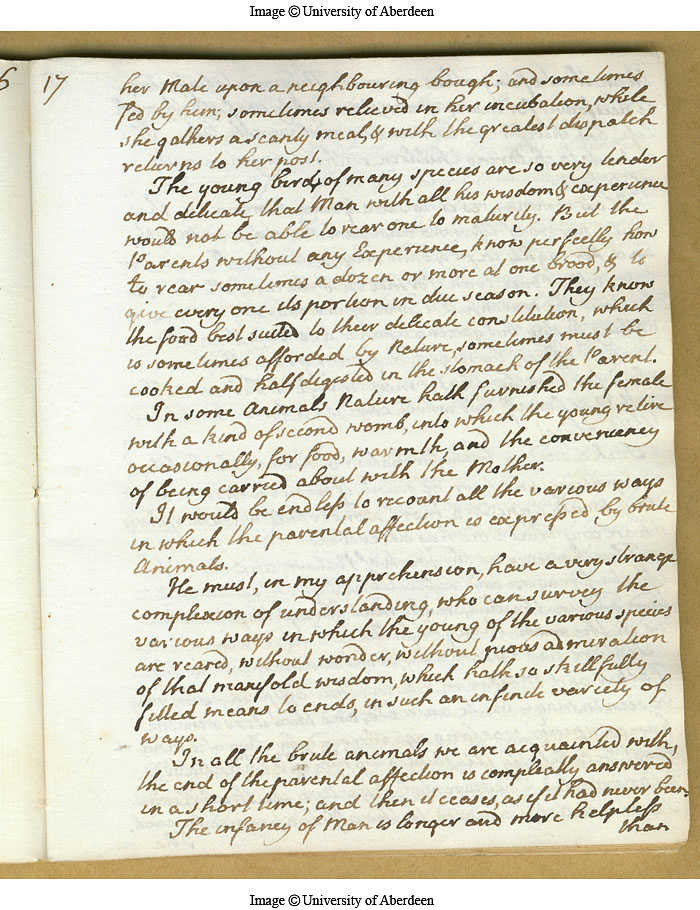 Image © University of Aberdeen
17
her Male upon a neighbouring bough; and sometimes
fed by him; sometimes relieved in her incubation, while
she gathers a scanty meal, & with the greatest dispatch
returns to her post.
The young birds of many species are so very tender
and delicate that Man with all his wisdom & experience
would not be able to rear one to maturity. But the
Parents without any Experience, know perfectly how
to rear sometimes a dozen or more at one brood, & to
give every one its portion in due season. They know
the food best suited to their delicate constitution, which
is sometimes afforded by Nature, sometimes must be
cooked and half digested in the stomack of the Parent.
In some Animals Nature hath furnished the female
with a kind of second womb, into which the young retire
occasionally, for food, warmth, and the conveniency
of being carried about with the Mother.
It would be endless to recount all the various ways
in which the parental affection is expressed by brute
Animals.
He must, in my apprehension, have a very strange
complexion of understanding, who can survey the
various ways in which the young of the various species
are reared, without wonder, without pious admiration
of that manifold wisdom, which hath so skillfully
fitted means to ends, in such an infinite variety of
ways.
In all the brute animals we are acquainted with,
the end of the parental affection is compleatly answered
in a short time; and then it ceases, as if it had never been.
The infancy of Man is longer and more helpless
than
Image © University of Aberdeen